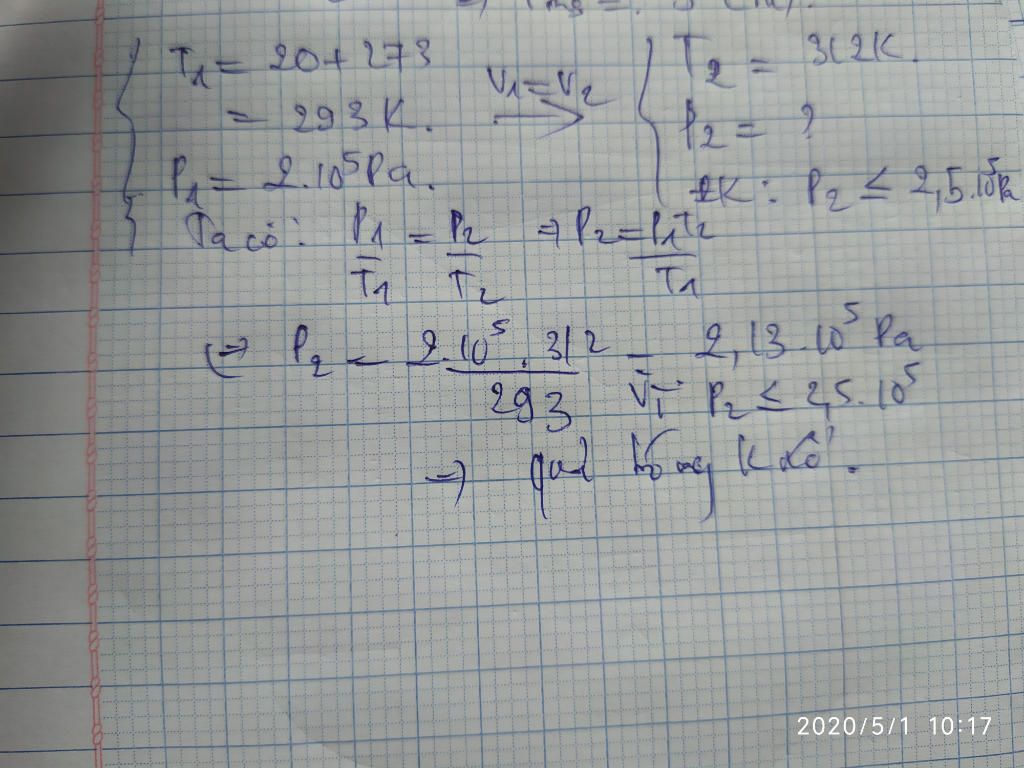 T1 = 20 + 273
= 293 K.
P1 = 2.10^5 Pa.
V1 = V2
T2 = 312K.
P2 = ?
ĐK: P2 ≤ 2,5.10^5 Pa
Ta có: P1/T1 = P2/T2 => P2 = P1T2/T1
(=> P2 = 2.10^5 . 312/293 = 2,13.10^5 Pa
Vì P2 ≤ 2,5.10^5
=>
2020/5/1 10:17